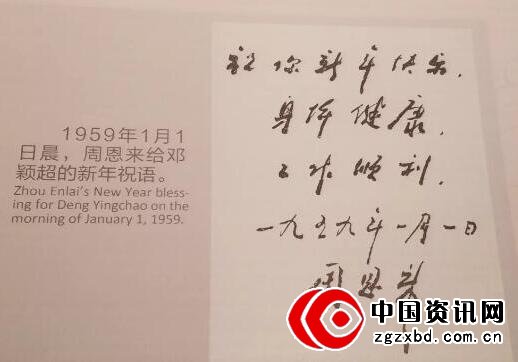 1959年1月1
日晨，周恩来给邓
颖超的新年祝语。
Zhou Enlai's New Year bless-
ing for Deng Yingchao on the
morning of January 1, 1959.
祝你新年快乐.
身体健康.
工作顺利.
一九五九年一月一日
周恩来
中国资讯网
zgzxbd.com.cn